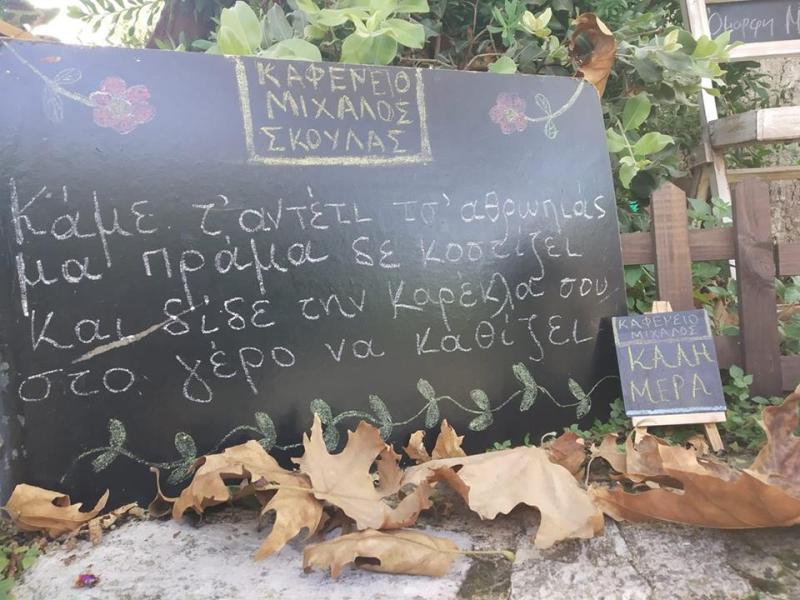 ΚΑΦΕΝΕΙΟ
ΜΙΧΑΛΟΣ
ΣΚΟΥΛΑΣ
Κάμε τ'αντέτι τσ'αθρωπιάς
μα πράμα δε κοστίζει
Και δίδε την καρέκλα σου
στο γέρο να καθίζει
ΚΑΦΕΝΕΙΟ
ΜΙΧΑΛΟΣ
ΚΑΛΗ
ΜΕΡΑ
Όμορφη Μ